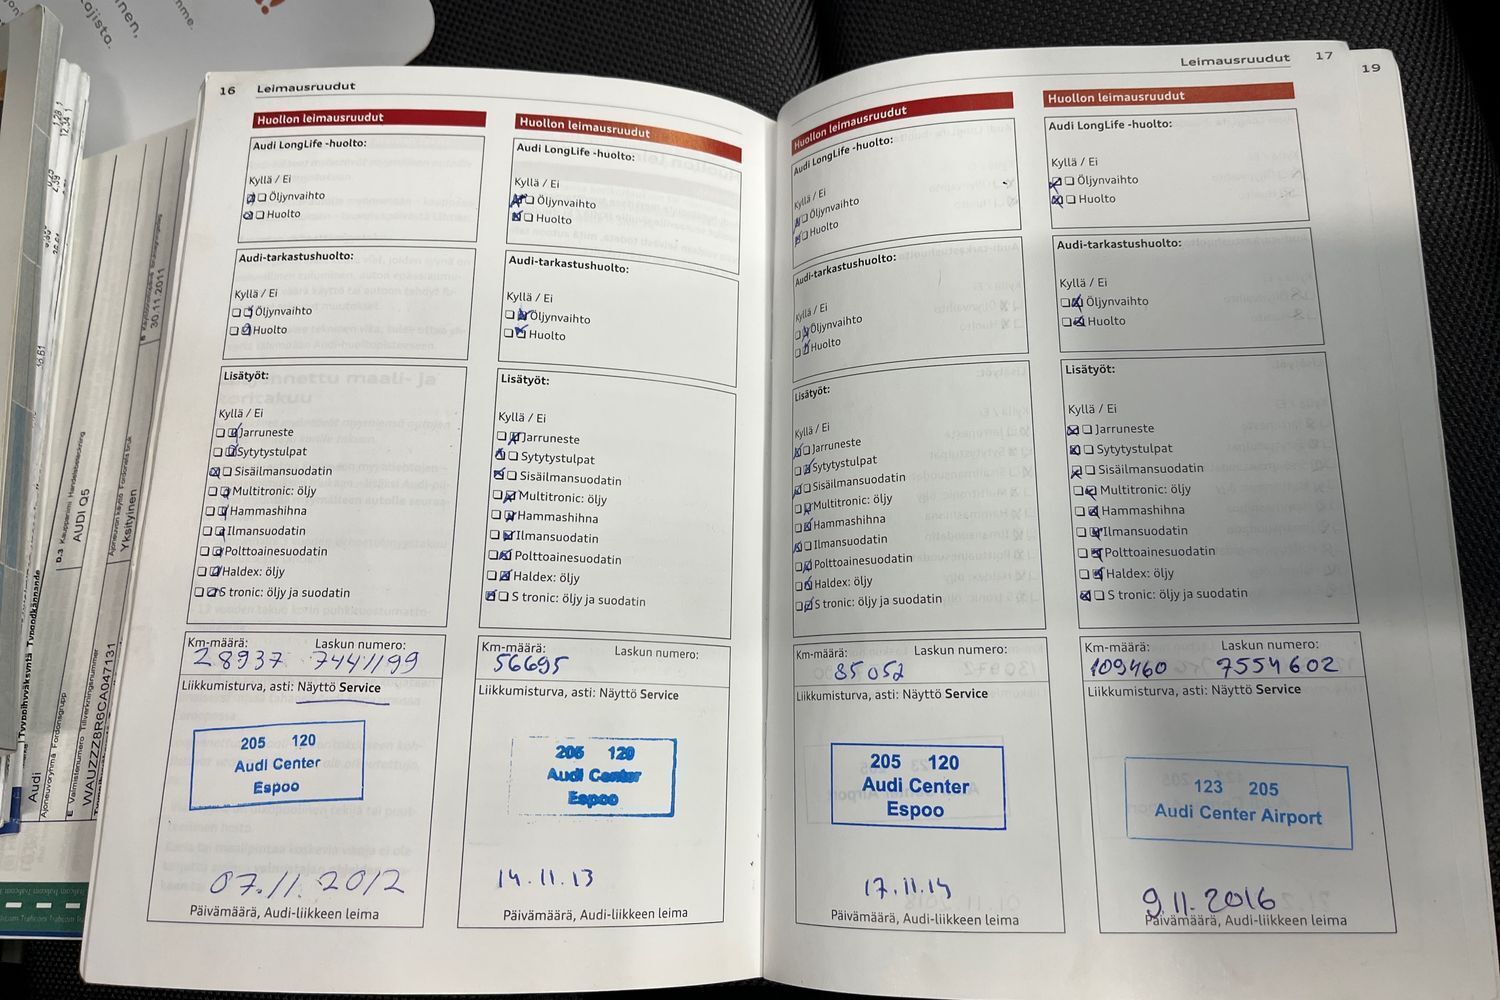 nen,
tajista.
mme.
AUDI Q5
D.3 Kauppanimi Handelsbeteckning
Ajoneuvon käyttö Fordonets bruk
Yksityinen
30.11.2011
Audi
Ajoneuvoryhmä Fordonsgrupp
E Valmistenumero Tillverkningsnummer
WAUZZZ8R6CA047131
16 Leimausruudut
Huollon leimausruudut
Audi LongLife -huolto:
Kyllä / Ei
Öljynvaihto
Huolto
Audi-tarkastushuolto:
Kyllä / Ei
Öljynvaihto
Huolto
Lisätyöt:
Kyllä / Ei
Jarruneste
Sytytystulpat
Sisäilmansuodatin
Multitronic: öljy
Hammashihna
Ilmansuodatin
Polttoainesuodatin
Haldex: öljy
S tronic: öljy ja suodatin
Km-määrä: Laskun numero:
28937 7441199
Liikkumisturva, asti: Näyttö Service
205 120
Audi Center
Espoo
07.11.2012
Päivämäärä, Audi-liikkeen leima
Huollon leimausruudut
Audi LongLife -huolto:
Kyllä / Ei
Öljynvaihto
Huolto
Audi-tarkastushuolto:
Kyllä / Ei
Öljynvaihto
Huolto
Lisätyöt:
Kyllä / Ei
Jarruneste
Sytytystulpat
Sisäilmansuodatin
Multitronic: öljy
Hammashihna
Ilmansuodatin
Polttoainesuodatin
Haldex: öljy
S tronic: öljy ja suodatin
Km-määrä: Laskun numero:
56695
Liikkumisturva, asti: Näyttö Service
205 120
Audi Center
Espoo
14.11.13
Päivämäärä, Audi-liikkeen leima
Leimausruudut 17
Huollon leimausruudut
Audi LongLife -huolto:
Kyllä / Ei
Öljynvaihto
Huolto
Audi-tarkastushuolto:
Kyllä / Ei
Öljynvaihto
Huolto
Lisätyöt:
Kyllä / Ei
Jarruneste
Sytytystulpat
Sisäilmansuodatin
Multitronic: öljy
Hammashihna
Ilmansuodatin
Polttoainesuodatin
Haldex: öljy
S tronic: öljy ja suodatin
Km-määrä: Laskun numero:
85052
Liikkumisturva, asti: Näyttö Service
205 120
Audi Center
Espoo
17.11.14
Päivämäärä, Audi-liikkeen leima
Huollon leimausruudut
Audi LongLife -huolto:
Kyllä / Ei
Öljynvaihto
Huolto
Audi-tarkastushuolto:
Kyllä / Ei
Öljynvaihto
Huolto
Lisätyöt:
Kyllä / Ei
Jarruneste
Sytytystulpat
Sisäilmansuodatin
Multitronic: öljy
Hammashihna
Ilmansuodatin
Polttoainesuodatin
Haldex: öljy
S tronic: öljy ja suodatin
Km-määrä: Laskun numero:
109460 7554602
Liikkumisturva, asti: Näyttö Service
123 205
Audi Center Airport
9.11.2016
Päivämäärä, Audi-liikkeen leima
19